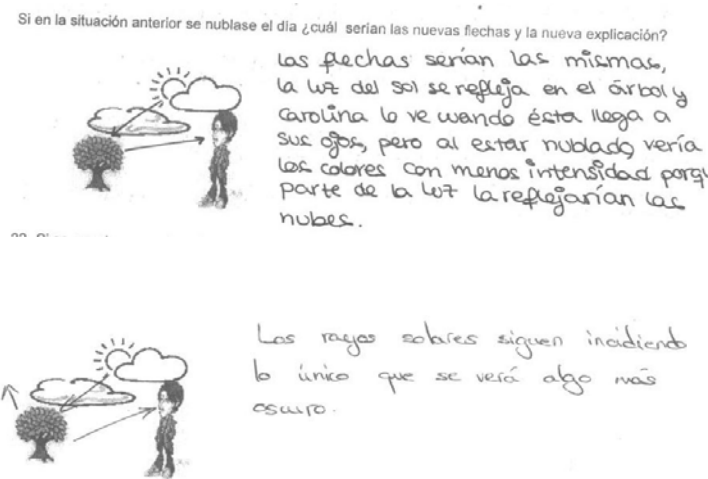 Si en la situación anterior se nublase el día ¿cuál serían las nuevas flechas y la nueva explicación?
Las flechas serían las mismas,
la luz del sol se refleja en el árbol y
Carolina lo ve cuando ésta llega a
sus ojos, pero al estar nublado vería
los colores con menos intensidad porq
parte de la luz la reflejarían las
nubes.
Los rayos solares siguen incidiendo
lo único que se verá algo más
oscuro.